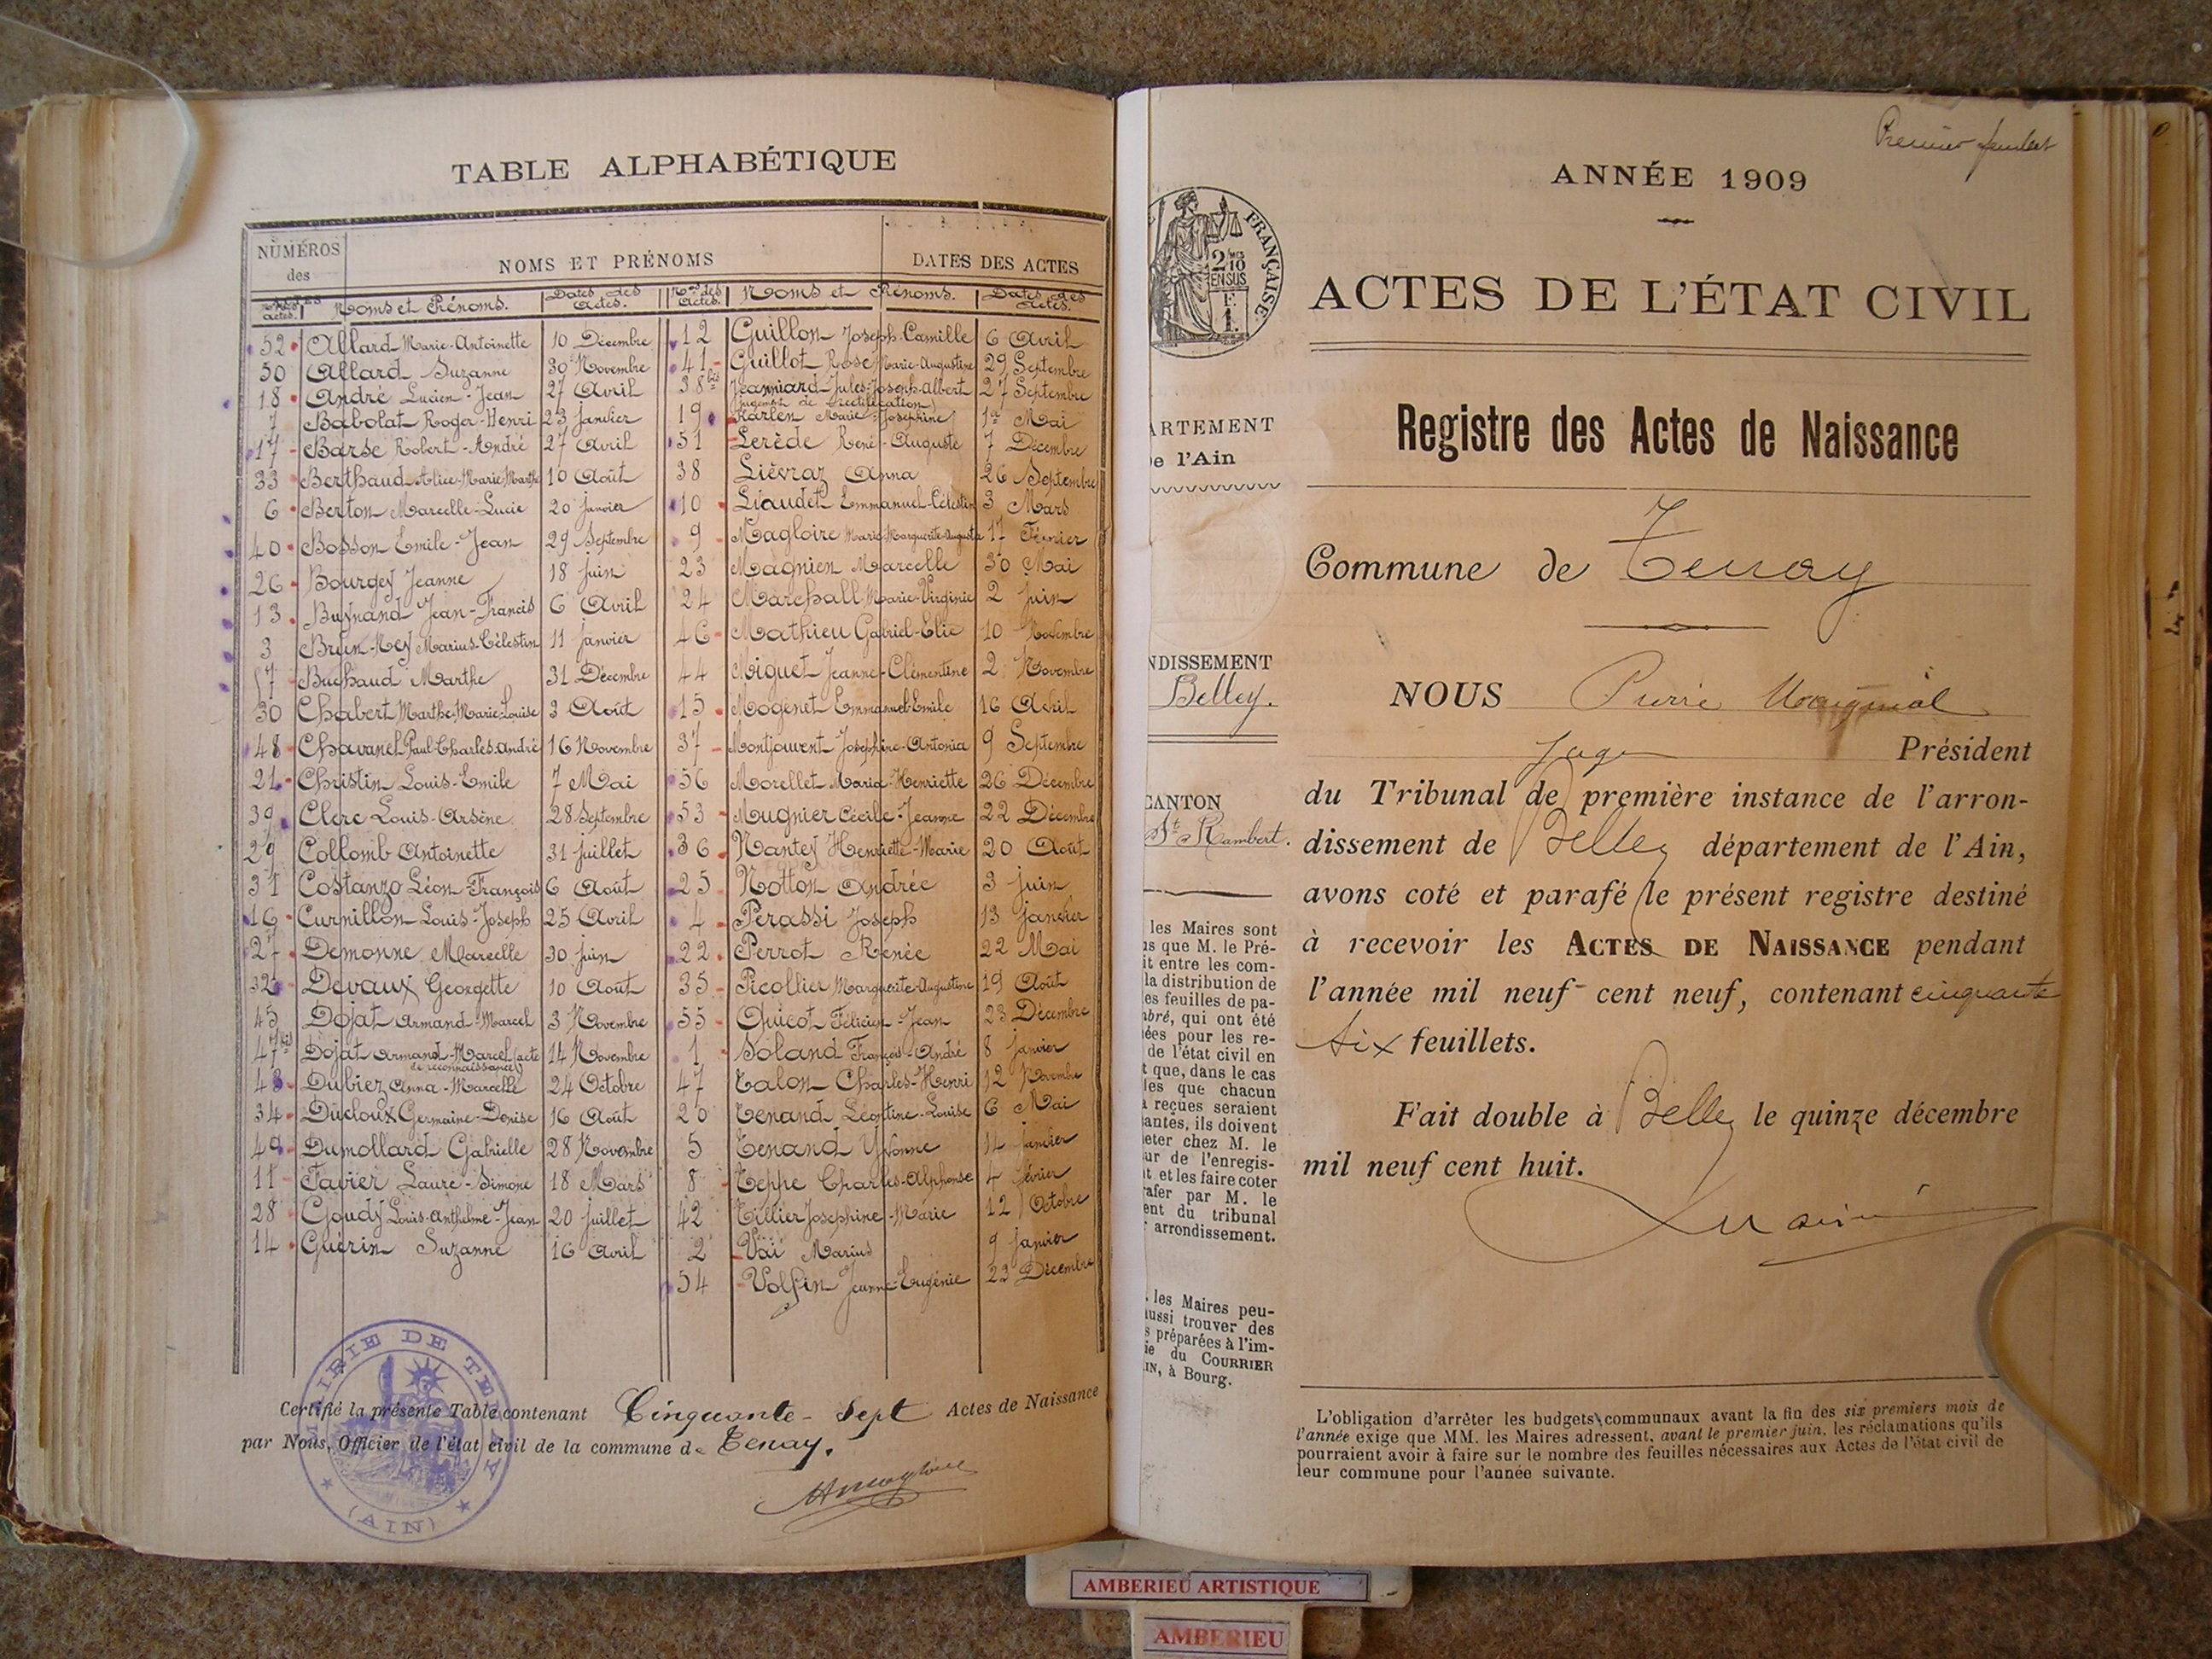 TABLE ALPHABÉTIQUE
NUMÉROS des ACTES
NOMS ET PRÉNOMS
DATES DES ACTES
Nos des actes. Noms et Prénoms. Dates des Actes. Nos des Actes. Noms et Prénoms. Dates des Actes.
52 Allard Marie-Antoinette 10 Décembre
50 Allard Suzanne 30 Novembre
18 André Lucien-Jean 27 Avril
7 Babolat Roger-Henri 23 janvier
17 Barse Robert-André 27 Avril
33 Berthaud Alice-Marie-Marthe 10 Août
6 Berton Marcelle-Lucie 20 janvier
40 Bosson Emile-Jean 29 Septembre
26 Bourgey Jeanne 18 juin
13 Buynand Jean-Francis 6 Avril
3 Brun-Ney Marius-Célestin 11 janvier
57 Buchaud Marthe 31 Décembre
30 Chabert Marthe-Marie-Louise 3 Août
48 Chavanel Paul-Charles-André 16 Novembre
21 Christin Louis-Emile 7 Mai
39 Clerc Louis-Arsène 28 Septembre
29 Collomb Antoinette 31 juillet
31 Costanzo Léon-François 6 Août
16 Curnillon Louis-Joseph 25 Avril
27 Demonne Marcelle 30 juin
32 Devaux Georgette 10 Août
45 Dojat Armand-Marcel 3 Novembre
47 bis Dojat Armand-Marcel (acte de reconnaissance) 14 Novembre
43 Dubiez Anna-Marcelle 24 Octobre
34 Ducloux Germaine-Denise 16 Août
49 Dumollard Gabrielle 28 Novembre
11 Favier Laure-Simone 18 Mars
28 Goudy Louis-Anthelme-Jean 20 juillet
14 Guérin Suzanne 16 Avril
12 Guillon Joseph-Camille 6 Avril
41 Guillot Rose Marie-Augustine 29 Septembre
38 bis Jeanniard Jules-Joseph-Albert 27 Septembre
(jugement de rectification)
19 Karlen Marie-Joséphine 1er Mai
51 Lerède René-Auguste 7 Décembre
38 Liévraz Anna 26 Septembre
10 Liaudet Emmanuel-Célestin 3 Mars
9 Magloire Marie-Marguerite-Augusta 17 Février
23 Magnien Marcelle 30 Mai
24 Marchall Marie-Virginie 2 juin
46 Mathieu Gabriel-Elie 10 Novembre
44 Miguet Jeanne-Clémentine 2 Novembre
15 Mogenet Emmanuel-Emile 16 Avril
37 Montjouvent Joséphine-Antonia 9 Septembre
56 Morellet Maria-Henriette 26 Décembre
53 Mugnier Cécile-Jeanne 22 Décembre
36 Nantey Henriette-Marie 20 Août
25 Notton Andrée 3 juin
4 Perassi Joseph 13 janvier
22 Perrot Renée 22 Mai
35 Picollier Marguerite-Augustine 19 Août
55 Quicot Félicien-Jean 23 Décembre
1 Soland François-André 8 janvier
47 Talon Charles-Henri 12 Novembre
20 Tenand Léontine-Louise 6 Mai
5 Tenand Yvonne 14 janvier
8 Teppe Charles-Alphonse 4 février
42 Tillier Joséphine-Marie 12 Octobre
2 Vaï Marius 9 janvier
54 Volfin Jeanne-Eugénie 23 Décembre
MAIRIE DE TENAY
(AIN)
Certifié la présente Table contenant Cinquante-Sept Actes de Naissance
par Nous, Officier de l'état civil de la commune de Tenay.
Premier feuillet
ANNÉE 1909
FRANÇAISE
2 10
EN SUS
ACTES DE L'ÉTAT CIVIL
ARTEMENT
e l'Ain
NDISSEMENT
Belley.
CANTON
St Rambert.
les Maires sont
s que M. le Pré-
it entre les com-
la distribution de
es feuilles de pa-
bré, qui ont été
ées pour les re-
de l'état civil en
t que, dans le cas
les que chacun
reçues seraient
antes, ils doivent
eter chez M. le
ur de l'enregis-
t et les faire coter
afer par M. le
ent du tribunal
arrondissement.
les Maires peu-
ussi trouver des
s préparées à l'im-
ie du COURRIER
IN, à Bourg.
Registre des Actes de Naissance
Commune de Tenay
NOUS Pierre
Juge Président
du Tribunal de première instance de l'arron-
dissement de Belley département de l'Ain,
avons coté et parafé le présent registre destiné
à recevoir les ACTES DE NAISSANCE pendant
l'année mil neuf cent neuf, contenant cinquante
six feuillets.
Fait double à Belley le quinze décembre
mil neuf cent huit.
L'obligation d'arrêter les budgets communaux avant la fin des six premiers mois de
l'année exige que MM. les Maires adressent, avant le premier juin, les réclamations qu'ils
pourraient avoir à faire sur le nombre des feuilles nécessaires aux Actes de l'état civil de
leur commune pour l'année suivante.
AMBERIEU ARTISTIQUE
AMBERIEU